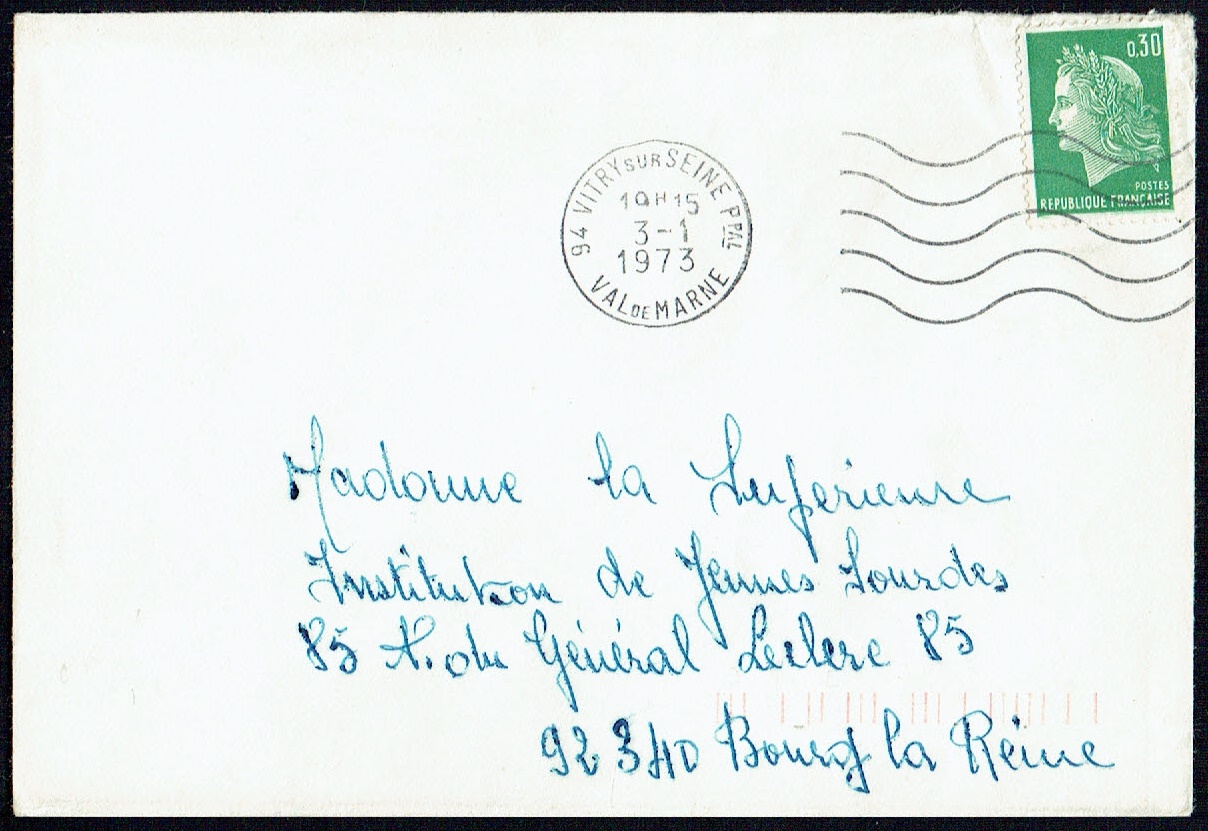 0,30
POSTES
REPUBLIQUE FRANÇAISE
94 VITRY SUR SEINE PPAL
19H15
3-1
1973
VAL DE MARNE
Madame la Superieure
Institution de Jeunes Sourdes
85 A. du Général Leclerc 85
92340 Bourg la Reine